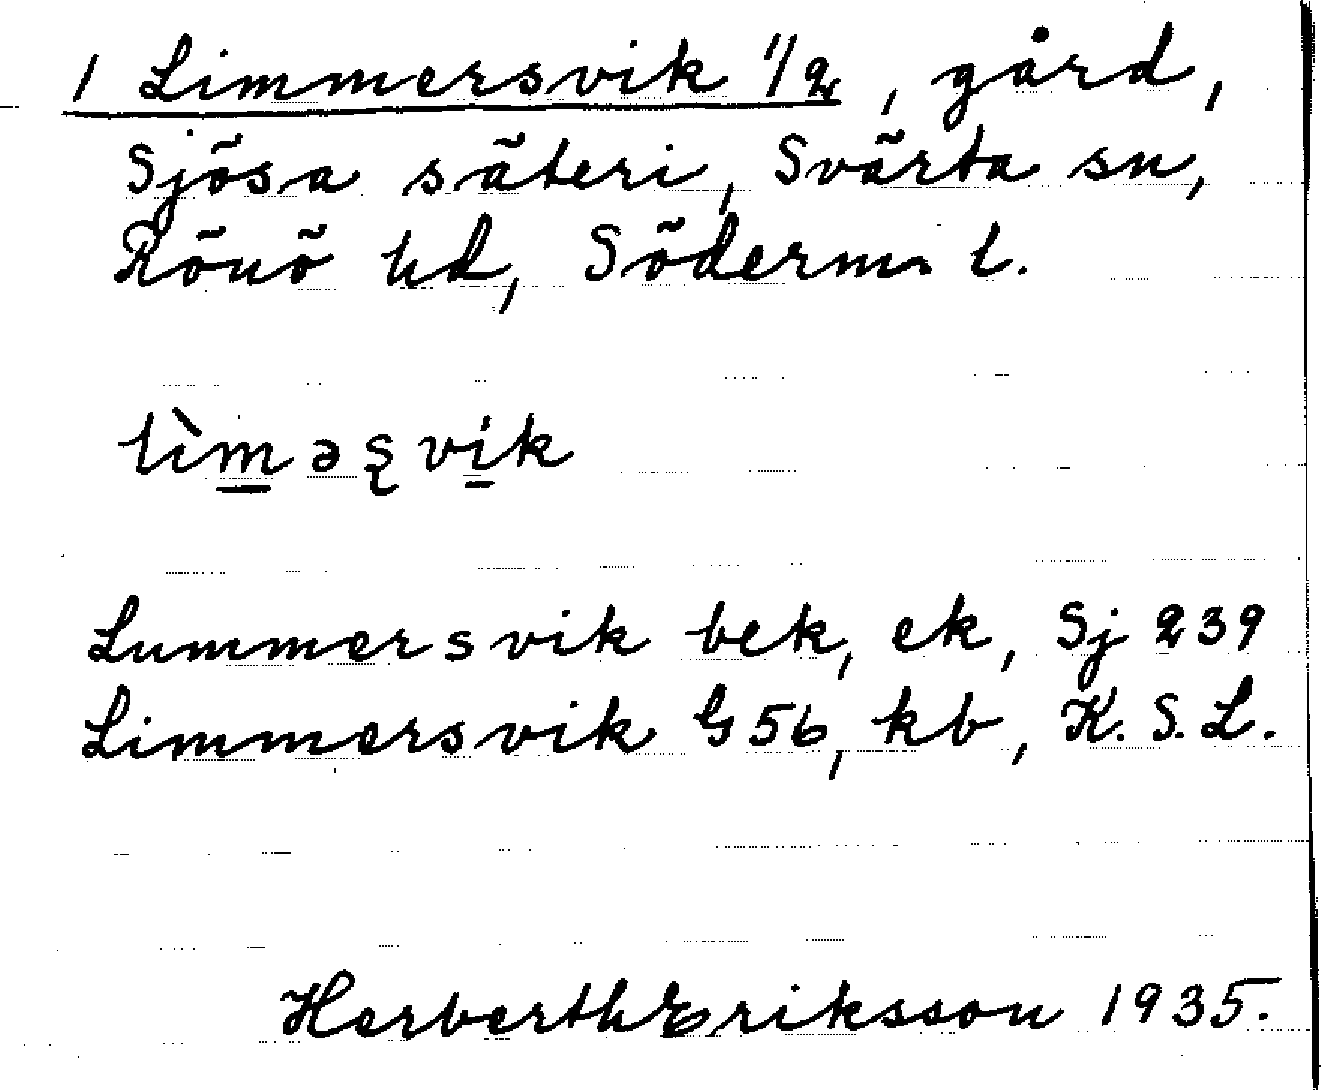 1 Limmersvik 1/2, gård,
Sjösa säteri, Svärta sn,
Rönö hd, Söderm. l.
lìm̲əʂvi̲k
Lummersvik bek, ek, Sj 239
Limmersvik G56, kb, K. S. L.
Herberth Eriksson 1935.